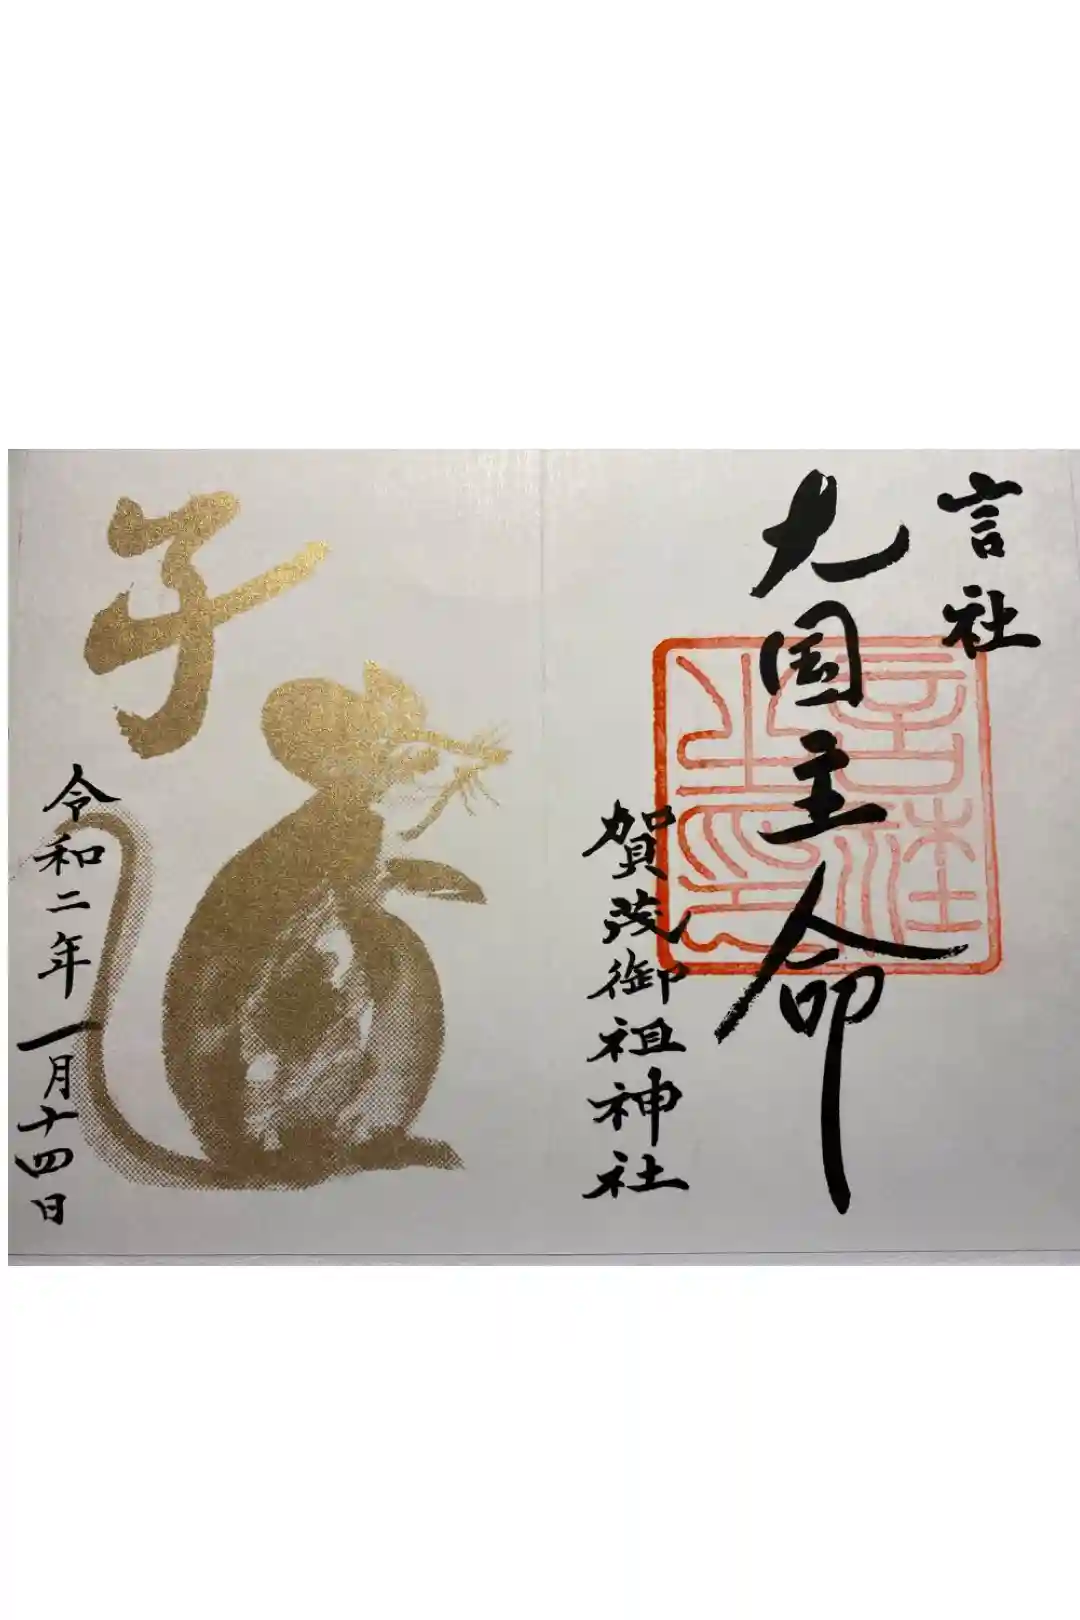 言社
大国主命
賀茂御祖神社
子
令和二年一月十四日
言社之印